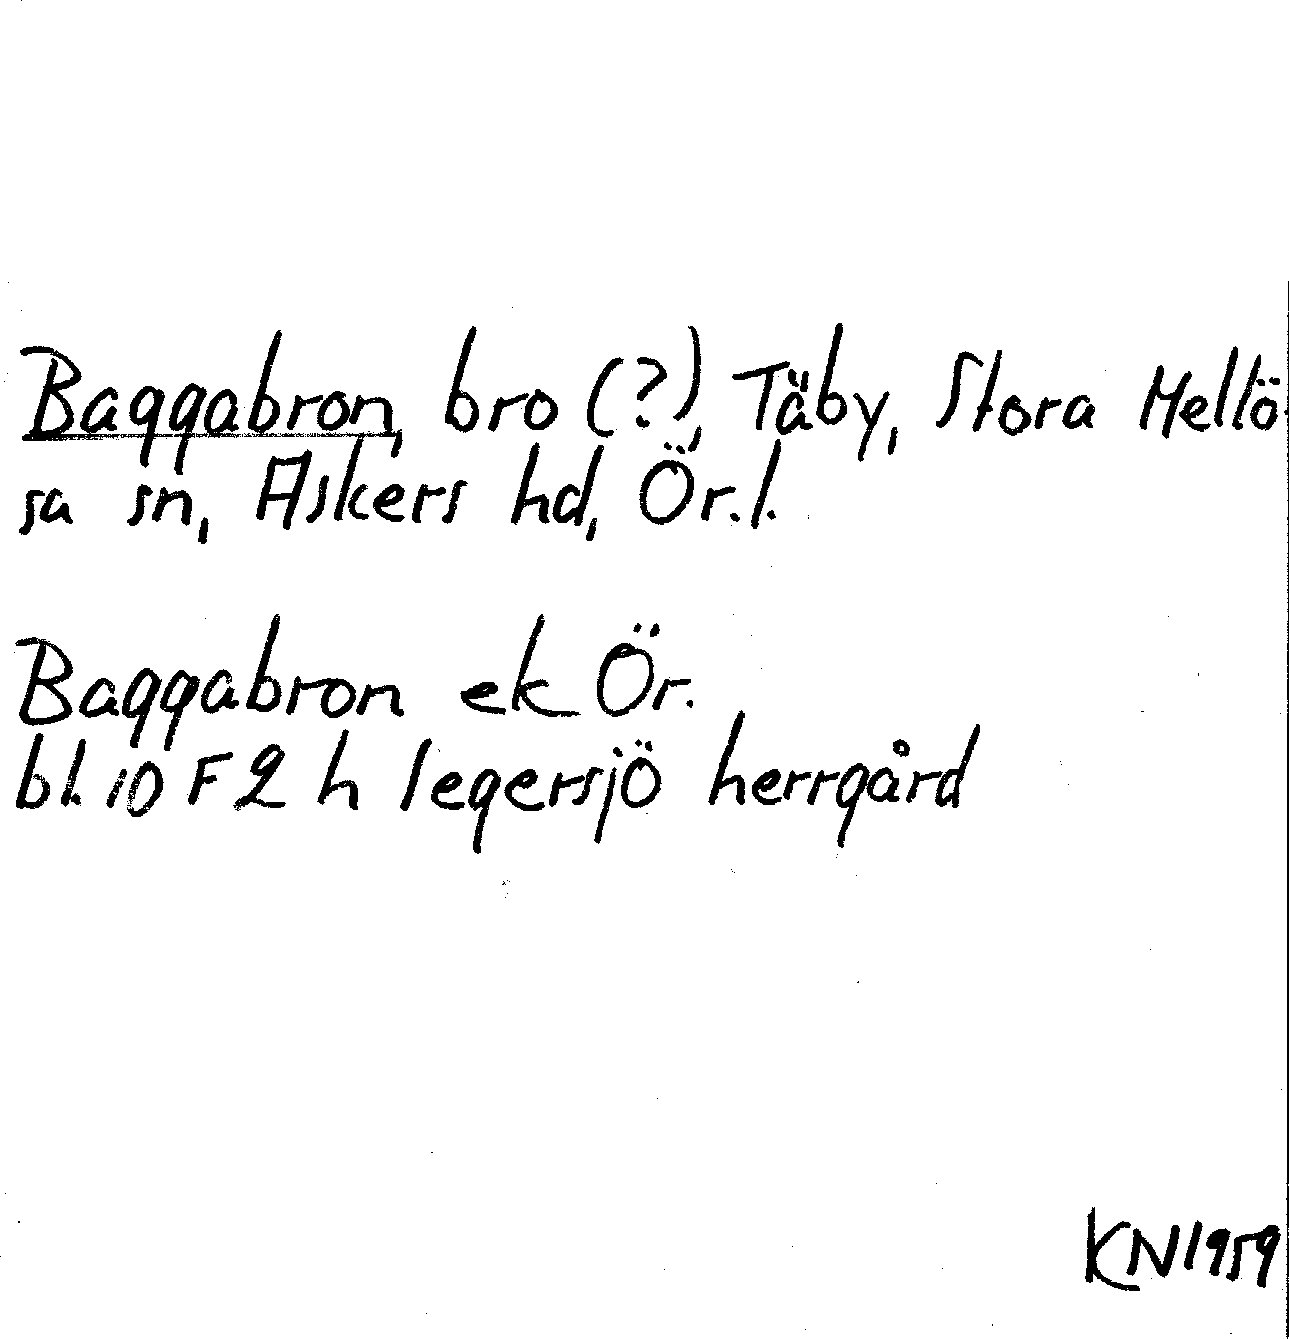 Baggabron, bro (?), Täby, Stora Mellö-
sa sn, Askers hd, Ör.l.
Baggabron ek Ör.
bl. 10 F 2 h Segersjö herrgård
KN 1959